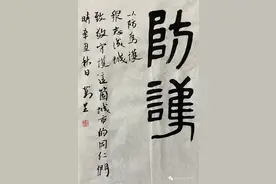 防護
以防為護
眾志成城
致敬守護這箇城市的同仁們
時辛丑秋日